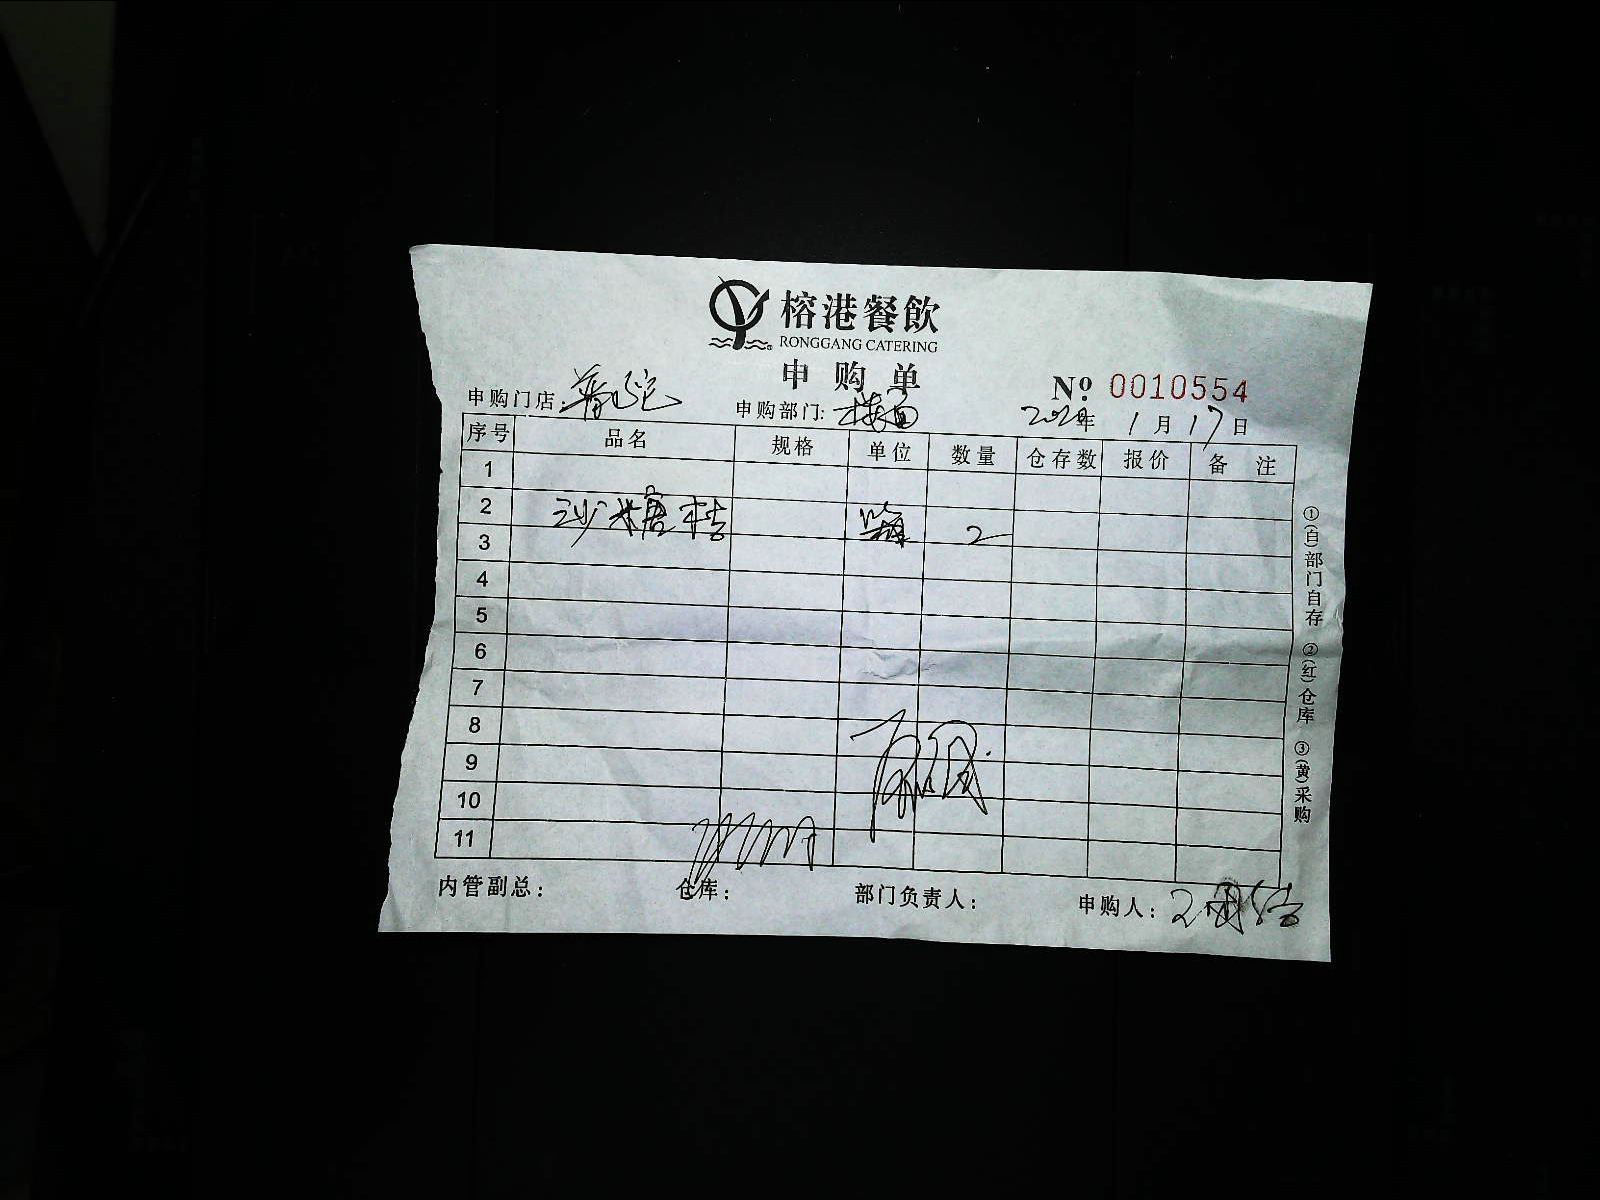 榕港餐飲
RONGGANG CATERING
申购单
Nº 0010554
申购门店: 普陀 申购部门: 楼面 年 1 月 17 日
序号 品名 规格 单位 数量 仓存数 报价 备注
1
2 沙糖桔 2
3
4
5
6
7
8
9
10
11
内管副总: 仓库: 部门负责人: 申购人:
①(自)部门自存 ②(红)仓库 ③(黄)采购